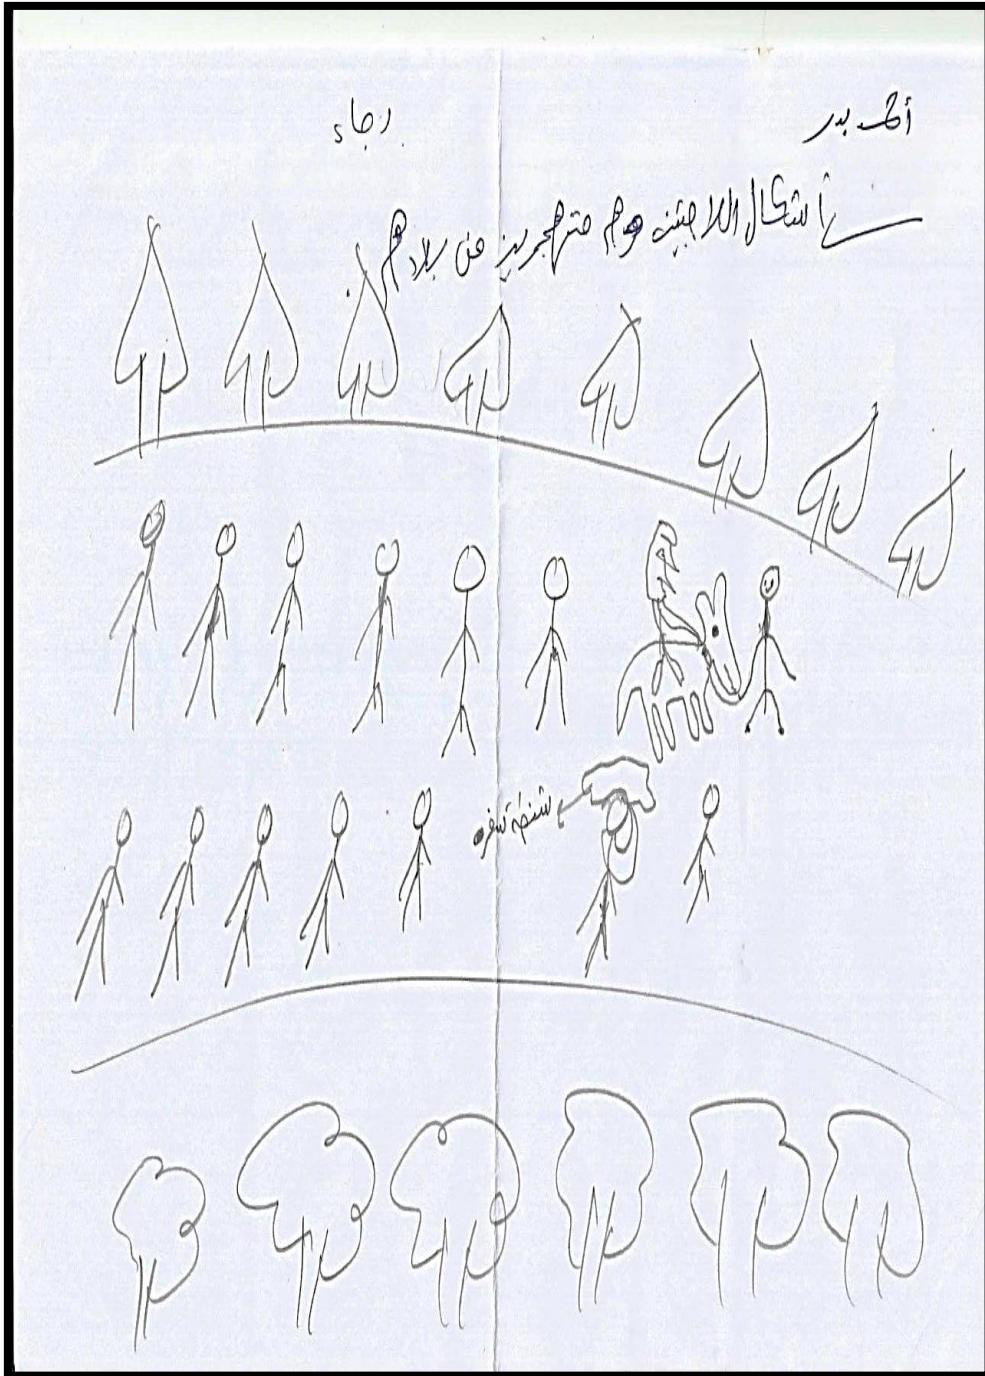 أحمد بدر
رجاء
أشكال اللاجئين وهم متهجرين من بلادهم
شنطة سفر